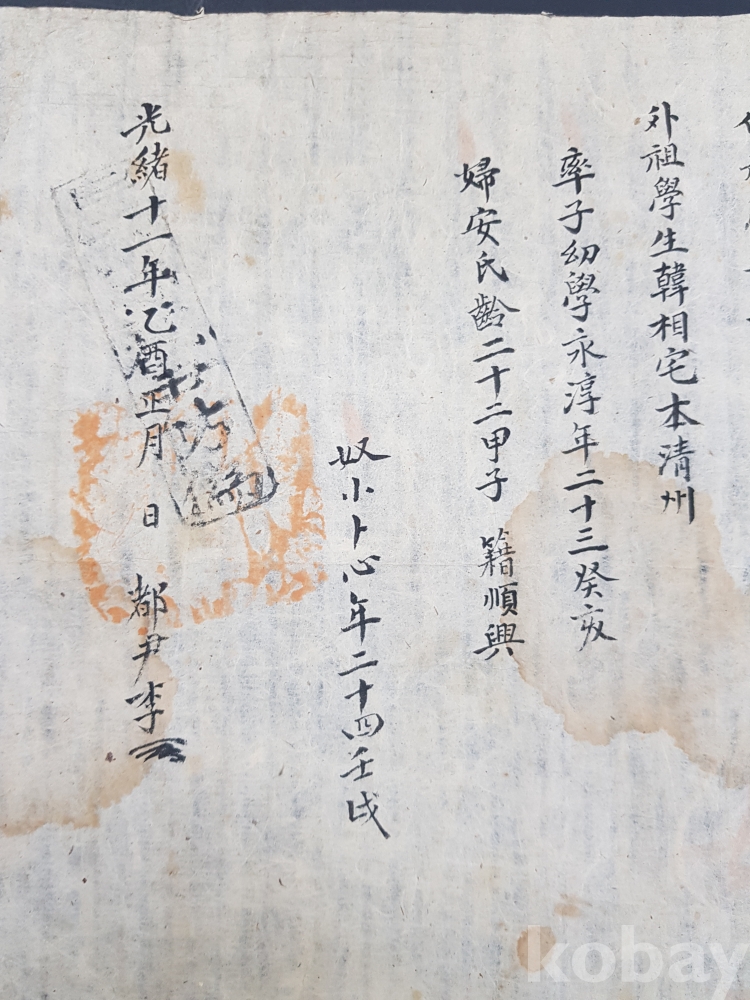 外祖學生韓相宅本清州
率子幼學永淳年二十三癸亥
婦安氏齡二十二甲子 籍順興
奴小卜心年二十四壬戌
光緖十一年乙酉正月 日 都尹李
kobay